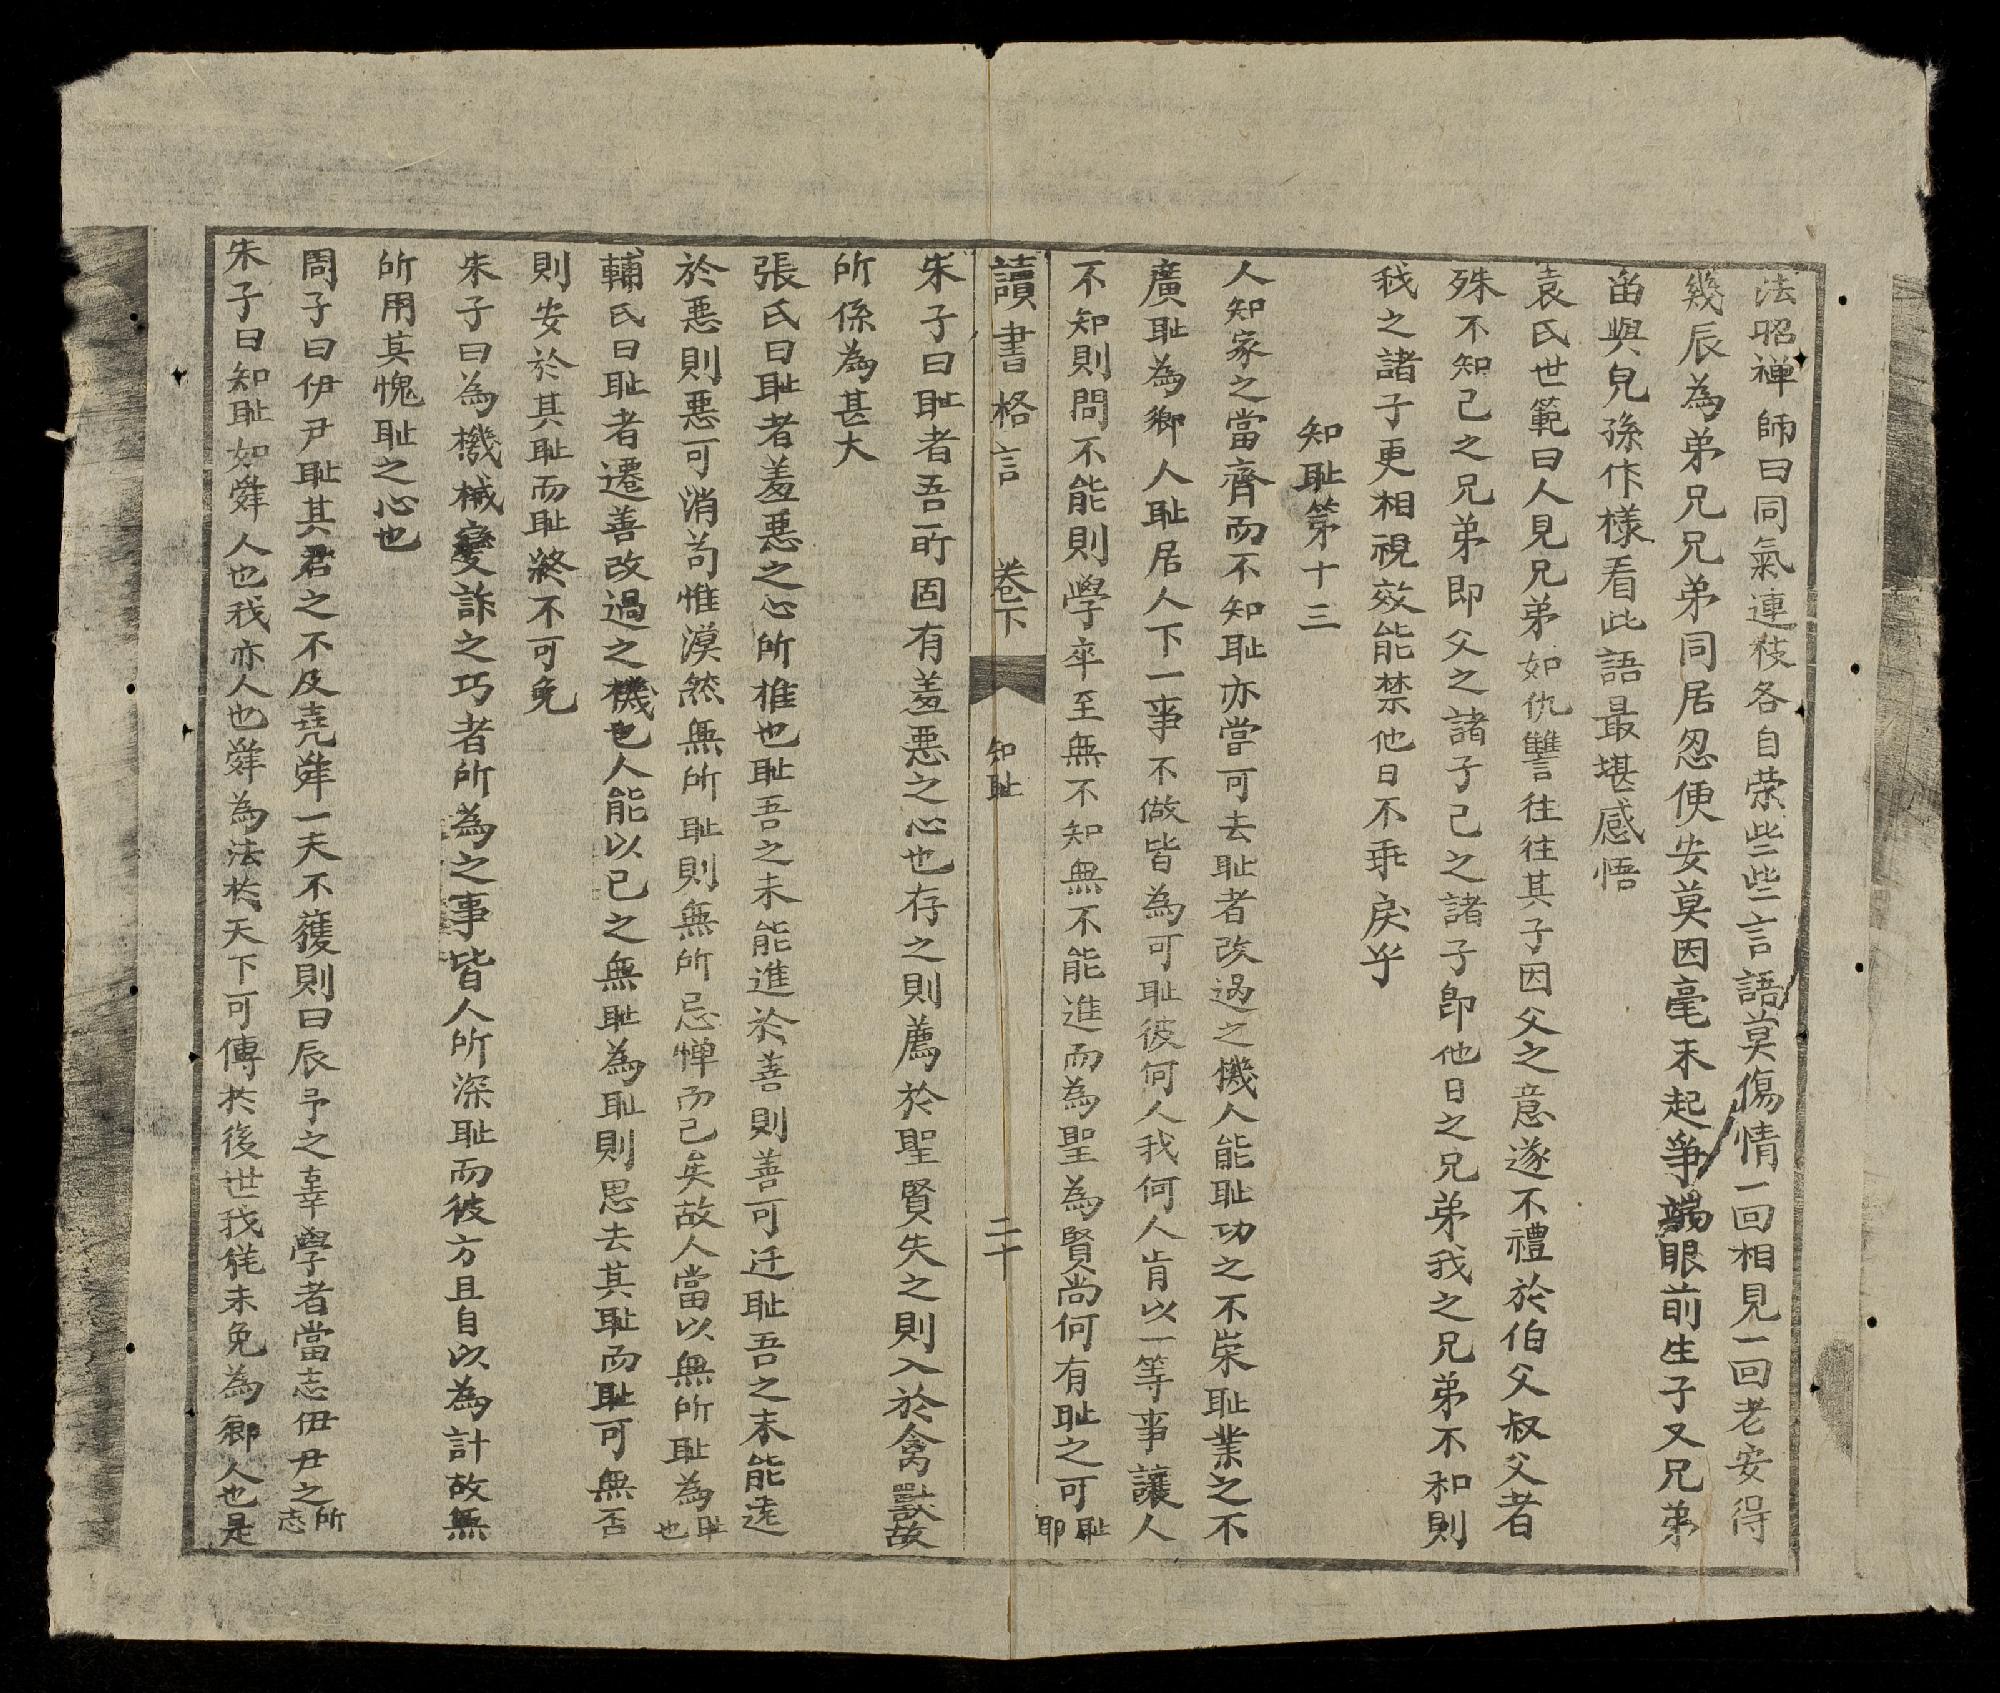 法昭禅師曰同氣連枝各自荣些些言語莫傷情一回相見一回老安得
幾辰為弟兄兄弟同居忍便安莫因毫末起爭端眼前生子又兄弟
畱與兒孫作樣看此語最堪感悟
袁氏世範曰人見兄弟如仇讐往往其子因父之意遂不禮於伯父叔父者
殊不知己之兄弟即父之諸子己之諸子即他日之兄弟我之兄弟不和則
我之諸子更相視效能禁他日不乖戾乎
知耻第十三
人知家之當齊而不知耻亦當可去耻者改過之機人能耻功之不崇耻業之不
廣耻為鄉人耻居人下一事不做皆為可耻彼何人我何人肯以一等事讓人
不知則問不能則學卒至無不知無不能進而為聖為賢尚何有耻之可耻耶
讀書格言 卷下 知耻 二十
朱子曰耻者吾所固有羞惡之心也存之則薦於聖賢失之則入於禽獸故
所係為甚大
張氏曰耻者羞惡之心所推也耻吾之未能進於善則善可迁耻吾之未能逺
於惡則惡可消苟惟漠然無所耻則無所忌惮而已矣故人當以無所耻為耻也
輔氏曰耻者遷善改過之機也人能以已之無耻為耻則思去其耻而耻可無否
則安於其耻而耻終不可免
朱子曰為機械變詐之巧者所為之事皆人所深耻而彼方且自以為計故無
所用其愧耻之心也
周子曰伊尹耻其君之不及尭舜一夫不獲則曰辰予之辜學者當志伊尹之所志
朱子曰知耻如舜人也我亦人也舜為法於天下可傳於後世我㹢未免為鄉人也是